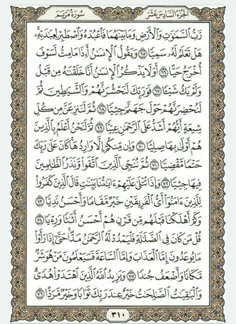 الجزء السادس عشر سورة مريم
رَّبُّ السَّمَٰوَٰتِ وَالْأَرْضِ وَمَا بَيْنَهُمَا فَاعْبُدْهُ وَاصْطَبِرْ لِعِبَٰدَتِهِۦ
هَلْ تَعْلَمُ لَهُۥ سَمِيًّا ٦٥ وَيَقُولُ الْإِنسَٰنُ أَءِذَا مَا مِتُّ لَسَوْفَ
أُخْرَجُ حَيًّا ٦٦ أَوَلَا يَذْكُرُ الْإِنسَٰنُ أَنَّا خَلَقْنَٰهُ مِن قَبْلُ
وَلَمْ يَكُ شَيْـًٔا ٦٧ فَوَرَبِّكَ لَنَحْشُرَنَّهُمْ وَالشَّيَٰطِينَ ثُمَّ
لَنُحْضِرَنَّهُمْ حَوْلَ جَهَنَّمَ جِثِيًّا ٦٨ ثُمَّ لَنَنزِعَنَّ مِن كُلِّ
شِيعَةٍ أَيُّهُمْ أَشَدُّ عَلَى الرَّحْمَٰنِ عِتِيًّا ٦٩ ثُمَّ لَنَحْنُ أَعْلَمُ بِالَّذِينَ
هُمْ أَوْلَىٰ بِهَا صِلِيًّا ٧٠ وَإِن مِّنكُمْ إِلَّا وَارِدُهَا كَانَ عَلَىٰ رَبِّكَ
حَتْمًا مَّقْضِيًّا ٧١ ثُمَّ نُنَجِّي الَّذِينَ اتَّقَوا وَّنَذَرُ الظَّٰلِمِينَ
فِيهَا جِثِيًّا ٧٢ وَإِذَا تُتْلَىٰ عَلَيْهِمْ ءَايَٰتُنَا بَيِّنَٰتٍ قَالَ الَّذِينَ كَفَرُوا
لِلَّذِينَ ءَامَنُوا أَيُّ الْفَرِيقَيْنِ خَيْرٌ مَّقَامًا وَأَحْسَنُ نَدِيًّا ٧٣
وَكَمْ أَهْلَكْنَا قَبْلَهُم مِّن قَرْنٍ هُمْ أَحْسَنُ أَثَٰثًا وَرِءْيًا ٧٤
قُلْ مَن كَانَ فِي الضَّلَٰلَةِ فَلْيَمْدُدْ لَهُ الرَّحْمَٰنُ مَدًّا حَتَّىٰ إِذَا رَأَوْا
مَا يُوعَدُونَ إِمَّا الْعَذَابَ وَإِمَّا السَّاعَةَ فَسَيَعْلَمُونَ مَنْ هُوَ شَرٌّ
مَّكَانًا وَأَضْعَفُ جُندًا ٧٥ وَيَزِيدُ اللَّهُ الَّذِينَ اهْتَدَوْا هُدًى
وَالْبَٰقِيَٰتُ الصَّٰلِحَٰتُ خَيْرٌ عِندَ رَبِّكَ ثَوَابًا وَخَيْرٌ مَّرَدًّا ٧٦
٣١٠